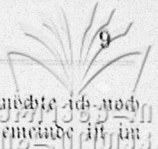 9
möchte ich noch
emeinde ist im